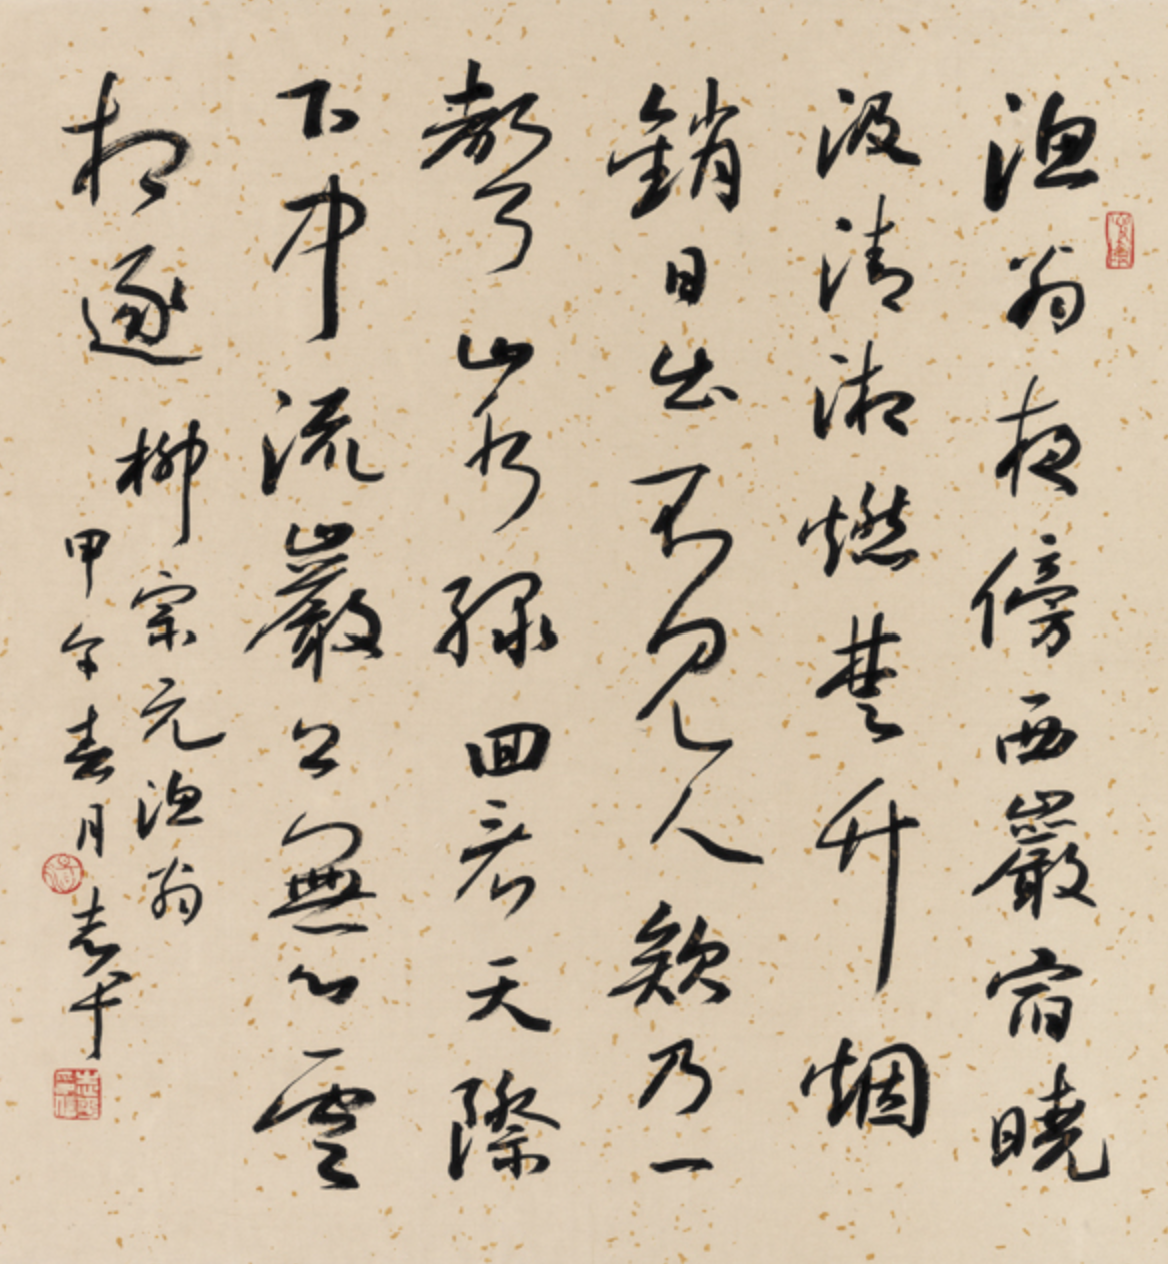 漁翁夜傍西巖宿曉
汲清湘燃楚竹烟
銷日出不見人欸乃一
聲山水綠回看天際
下中流巖上無心雲
相逐 柳宗元漁翁
甲午春月志平